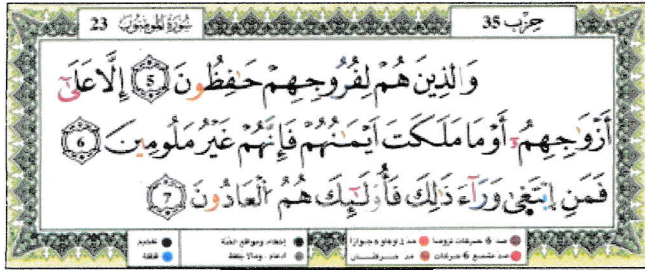 سُورَةُ المُومِنُون 23
حِزْب 35
وَالذِينَ هُمْ لِفُرُوجِهِمْ حَٰفِظُونَ 5 إِلَّا عَلَىٰٓ
أَزْوَٰجِهِمُۥٓ أَوْ مَا مَلَكَتَ اَيْمَٰنُهُمْ فَإِنَّهُمْ غَيْرُ مَلُومِينَ 6
فَمَنِ اِبْتَغَىٰ وَرَآءَ ذَٰلِكَ فَأُوْلَٰٓئِكَ هُمُ اُلْعَادُونَ 7
مد 6 حركات لزوما مد 2 أو 4 أو 6 جوازا إخفاء، ومواقع الغنة تفخيم
مد مشبع 6 حركات مد حركتان إدغام، ومالا يلفظ قلقلة